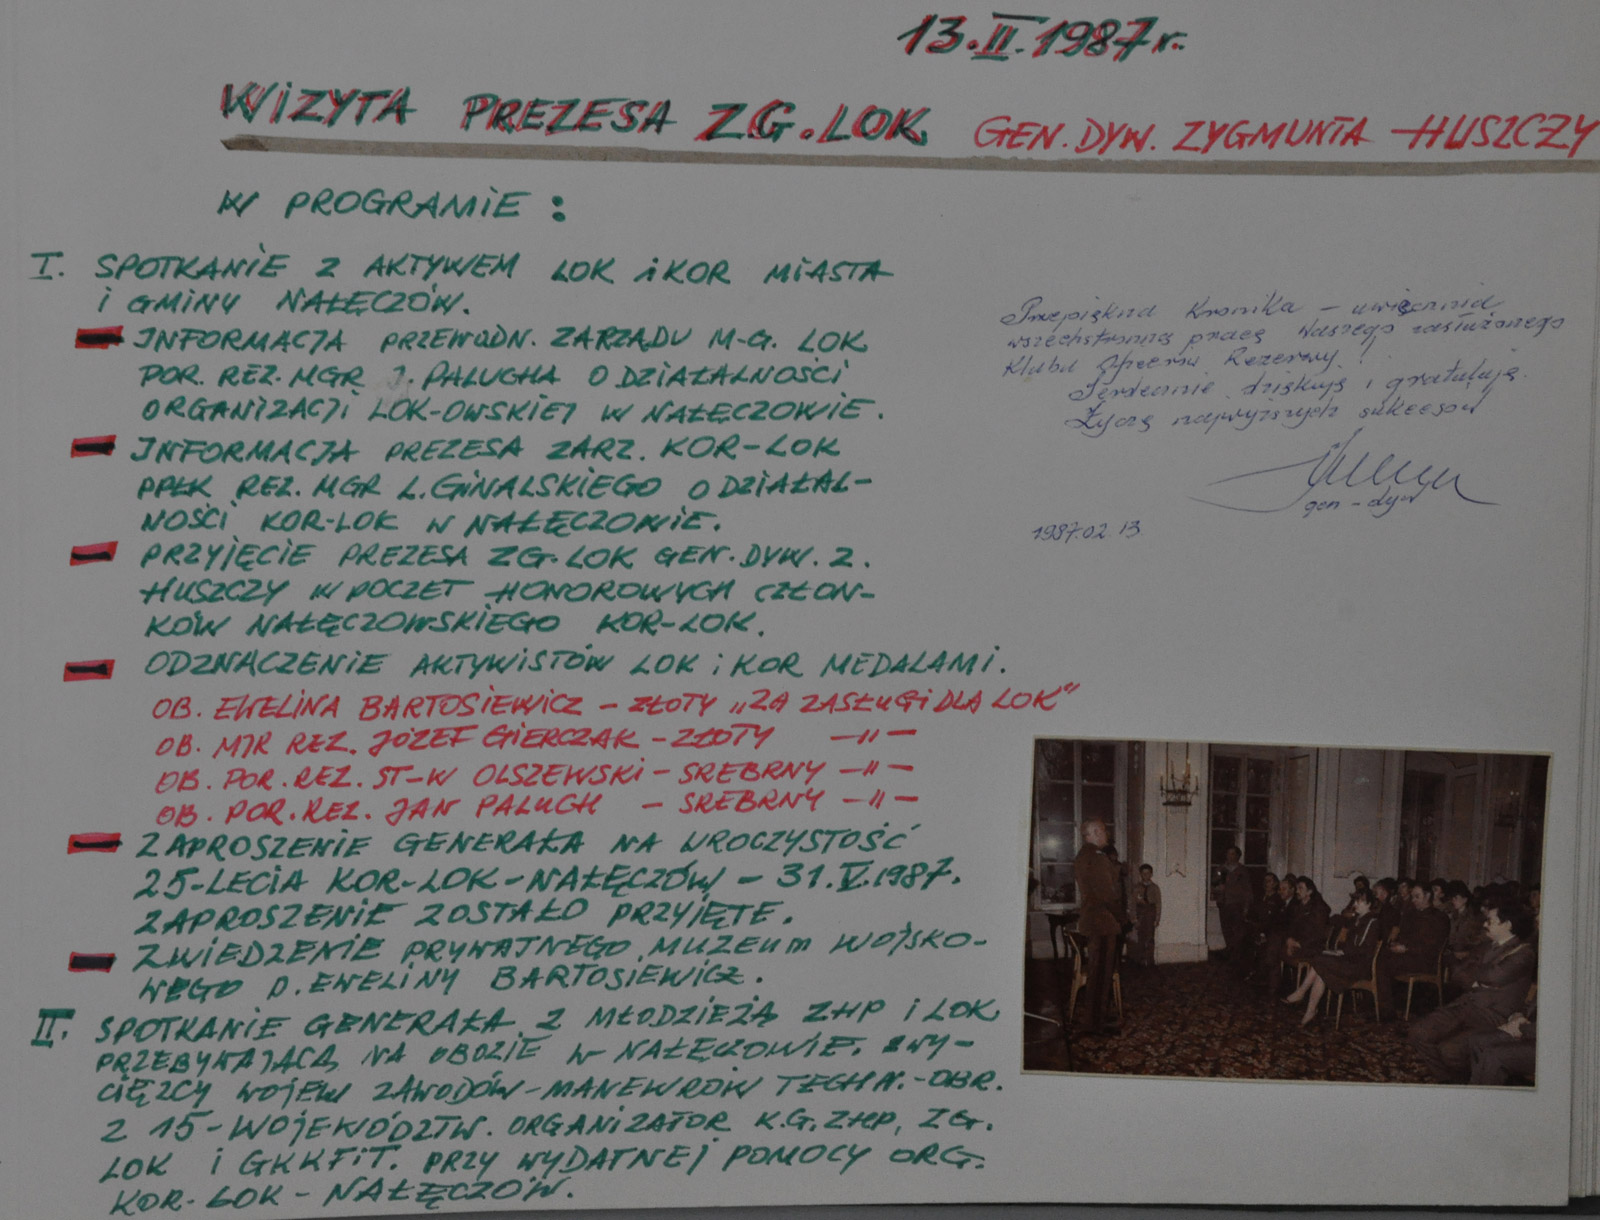 13.II.1987r.
WIZYTA PREZESA ZG. LOK GEN. DYW. ZYGMUNTA HUSZCZY
W PROGRAMIE :
I. SPOTKANIE Z AKTYWEM LOK i KOR MIASTA
I GMINY NAŁĘCZÓW.
INFORMACJA PRZEWODN. ZARZĄDU M-G. LOK
POR. REZ. MGR J. PALUCHA O DZIAŁALNOŚCI
ORGANIZACJI LOK-OWSKIEJ W NAŁĘCZOWIE.
INFORMACJA PREZESA ZARZ. KOR-LOK
PPŁK REZ. MGR L. GINALSKIEGO O DZIAŁAL-
NOŚCI KOR-LOK W NAŁĘCZOWIE.
PRZYJĘCIE PREZESA ZG. LOK GEN. DYW. Z.
HUSZCZY W POCZET HONOROWYCH CZŁON-
KÓW NAŁĘCZOWSKIEGO KOR-LOK.
ODZNACZENIE AKTYWISTÓW LOK i KOR MEDALAMI.
OB. EWELINA BARTOSIEWICZ - ZŁOTY „ZA ZASŁUGI DLA LOK"
OB. MJR REZ. JÓZEF GIERCZAK - ZŁOTY -„-
OB. POR. REZ. ST-W OLSZEWSKI - SREBRNY -„-
OB. POR. REZ. JAN PALUCH - SREBRNY -„-
ZAPROSZENIE GENERAŁA NA UROCZYSTOŚĆ
25-LECIA KOR-LOK-NAŁĘCZÓW - 31.V.1987.
ZAPROSZENIE ZOSTAŁO PRZYJĘTE.
ZWIEDZENIE PRYWATNEGO MUZEUM WOJSKO-
WEGO P. EWELINY BARTOSIEWICZ.
II. SPOTKANIE GENERAŁA Z MŁODZIEŻĄ ZHP i LOK
PRZEBYWAJĄCĄ NA OBOZIE W NAŁĘCZOWIE. ZWY-
CIĘZCY WOJEW ZAWODÓW-MANEWRÓW TECHN.-OBR.
Z 15-WOJEWÓDZTW. ORGANIZATOR K.G. ZHP, ZG.
LOK I GKKFiT. PRZY WYDATNEJ POMOCY ORG.
KOR-LOK-NAŁĘCZÓW.
Przepiękna Kronika - uwiecznia
wszechstronną pracę Waszego zasłużonego
Klubu Oficerów Rezerwy!
Serdecznie dziękuję i gratuluję.
Życzę najwyższych sukcesów
gen - dyw
1987.02.13.